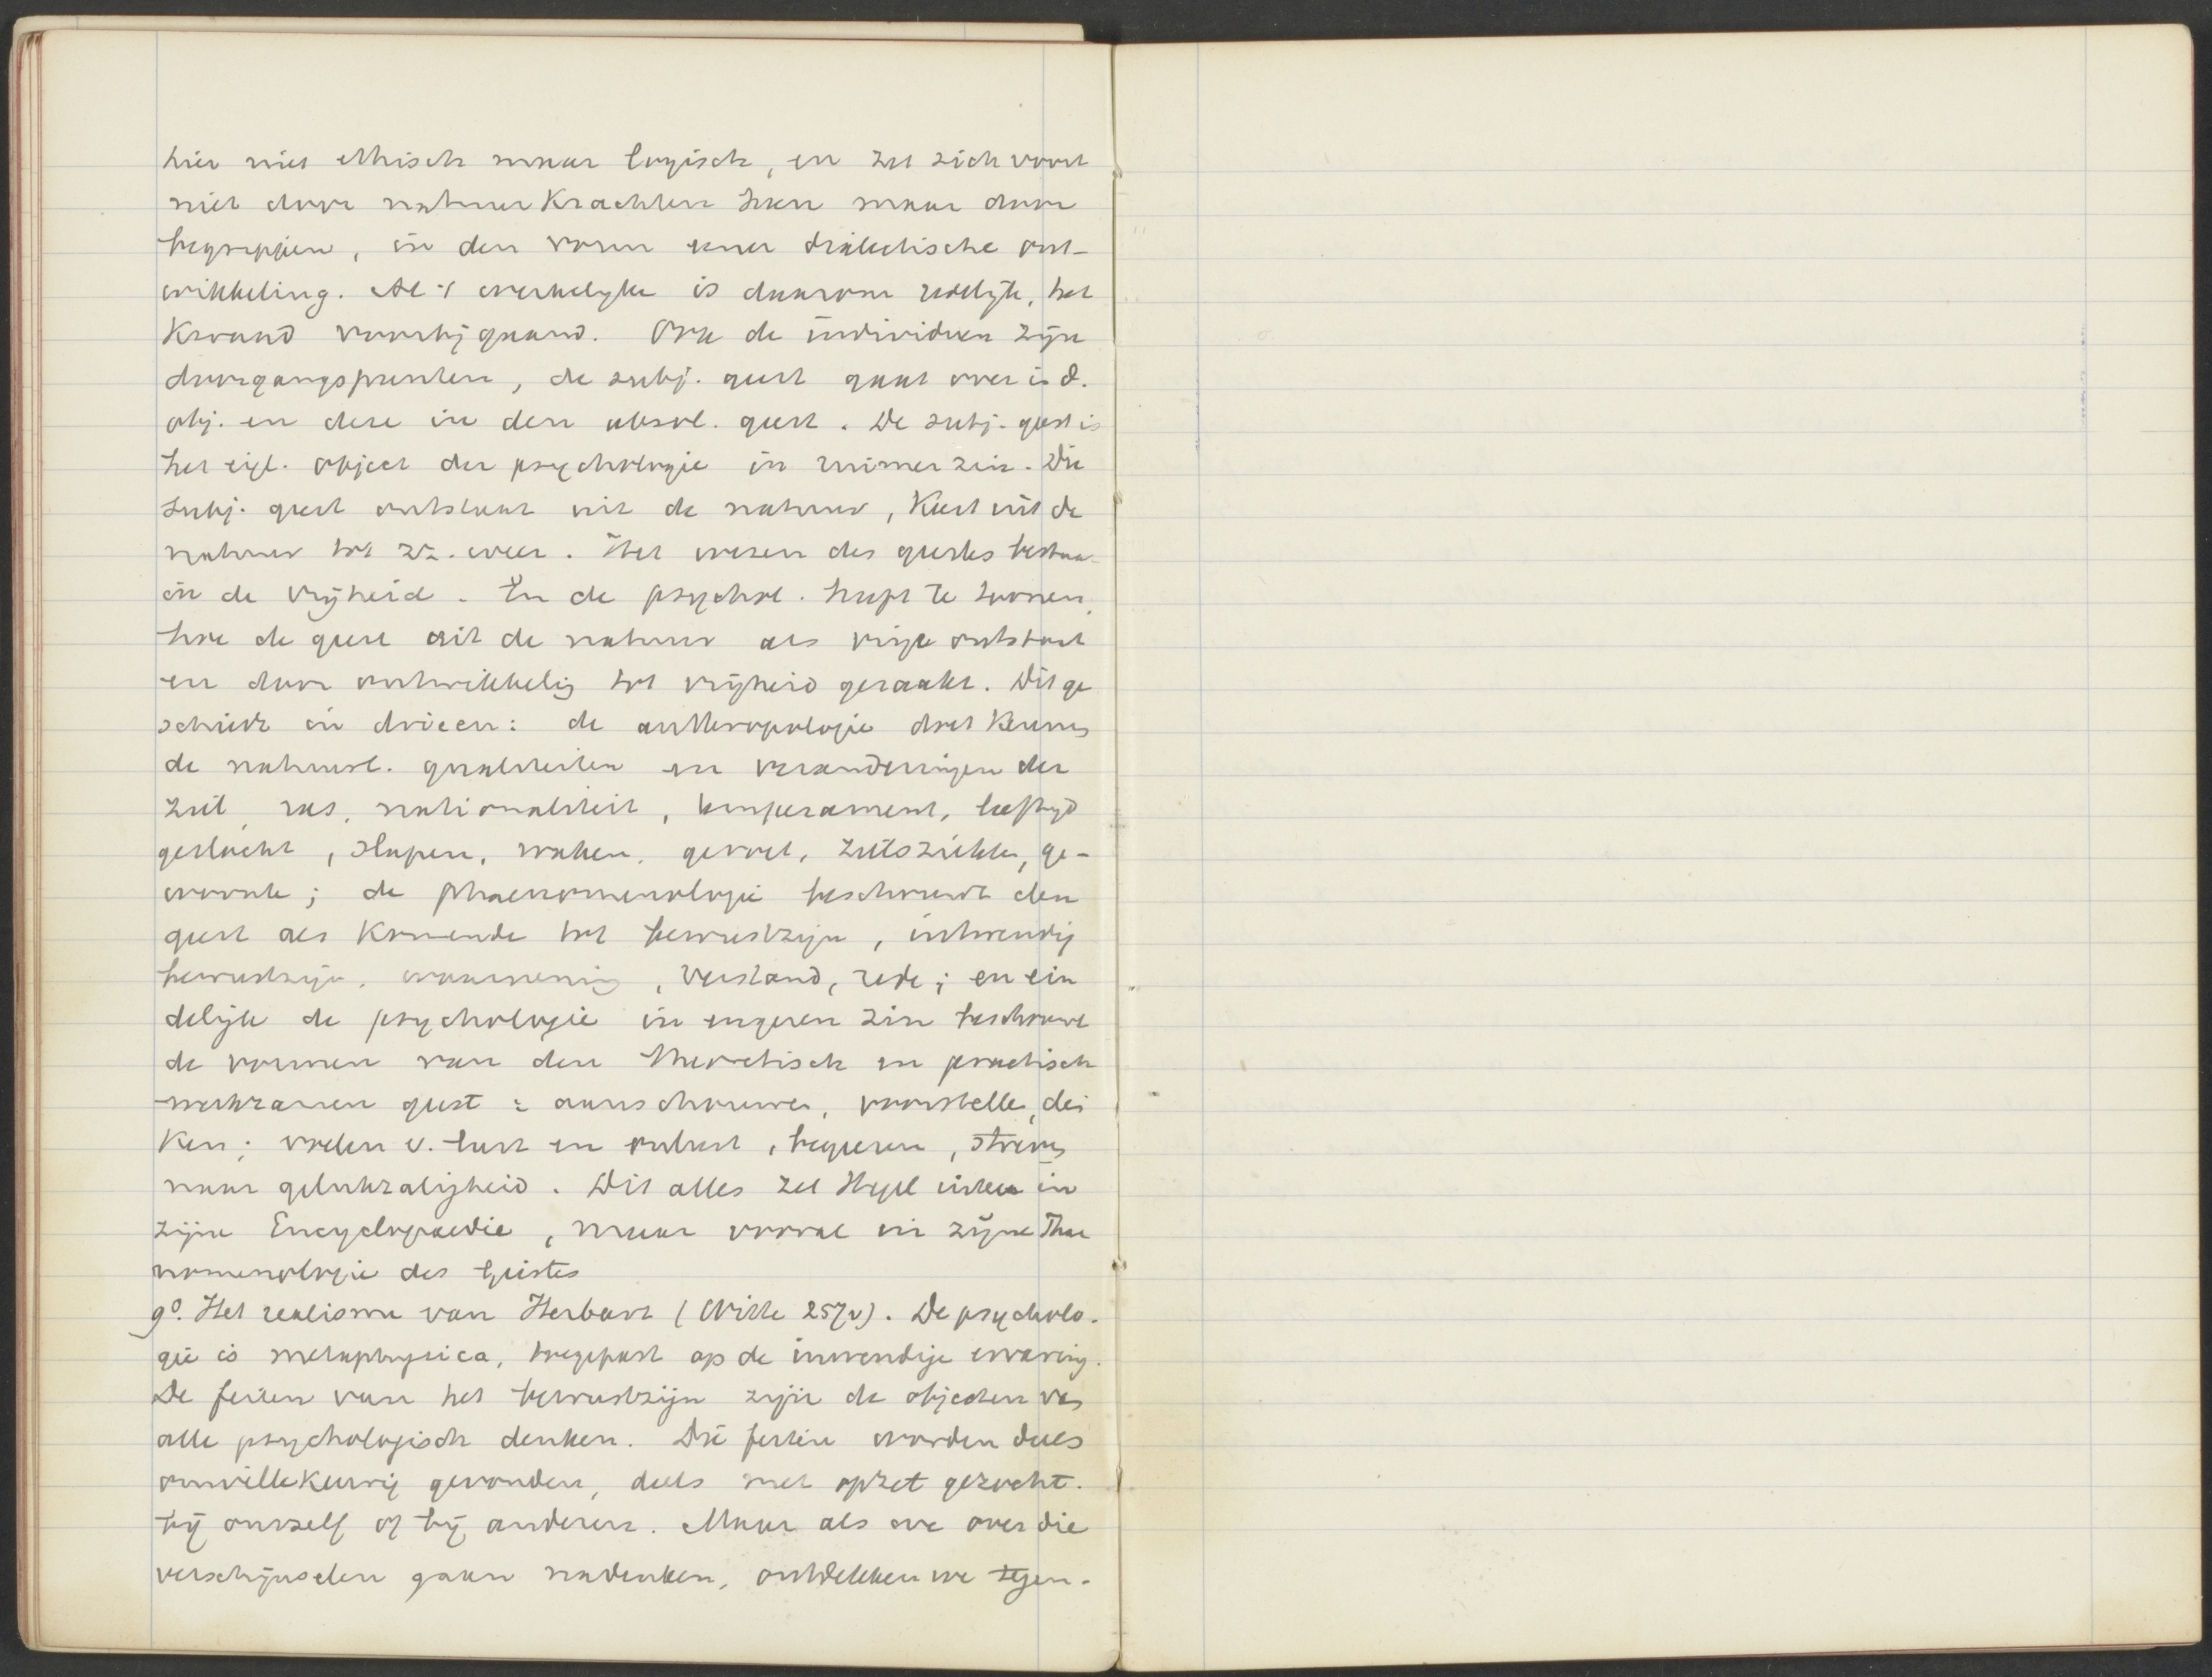 hier niet ethisch maar logisch, en zet zich voort
niet door natuurkrachten heen maar door
begrippen, in den vorm eener dialectische ont-
wikkeling. Al 't werkelyke is daarom redelijk, het
kwaad voorbijgaand. Ook de individuen zijn
doorgangspunten, de subj. geest gaat over i. d.
obj. en deze in den absol. geest. De subj. geest is
het eigl. object der psychologie in ruimer zin. Die
subj. geest ontstaat uit de natuur, keert uit de
natuur tot zz. weer. Het wezen des geestes bestaat
in de vrijheid. En de psychol. heeft te toonen,
hoe de geest uit de natuur als vrije ontstaat
en door ontwikkelig tot vrijheid geraakt. Dit ge
schiedt in drieen: de anthropologie doet kennen
de natuurl. qualiteiten en veranderingen der
ziel, ras, nationaliteit, temperament, leeftijd
geslacht, slapen, waken, gevoel, zielsziekte, ge-
woonte; de phaenomenologie beschouwt den
geest als komende tot bewustzijn, inwendig
bewustzijn, waarneming, verstand, rede; en ein
delijk de psychologie in engeren zin beschouwt
de vormen van den theoretisch en practisch
werkzamen geest: aanschouwen, voorstellen, den
ken; voelen v. lust en onlust, begeeren, streven
naar gelukzaligheid. Dit alles zet Hegel uiteen in
zijne Encyclopaedie, maar vooral in zijne Phae
nomenologie des Geistes
9°. Het realisme van Herbart (Witte 257v). De psycholo-
gie is metaphysica, toegepast op de inwendige ervaring.
De feiten van het bewustzijn zijn de objecten van
alle psychologisch denken. Die feiten worden deels
onwillekeurig gevonden, deels met opzet gezocht.
bij onszelf of bij anderen. Maar als we over die
verschijnselen gaan nadenken, ontdekken we tegen-